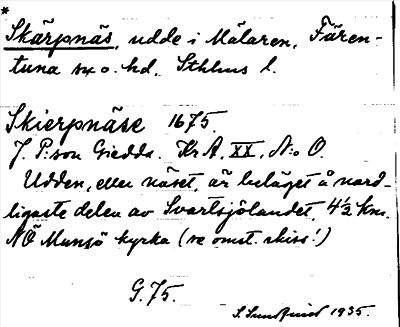 *
Skärpnäs, udde i Mälaren, Fären-
tuna sn o. hd, Sthlms l.
Skierpnäse 1675.
J. P:son Giedda. Kr A, XX, N:o O.
Udden, eller näset, är beläget å nord-
ligaste delen av Svartsjölandet, 4½ km.
NÖ Munsö kyrka (se omst. skiss!)
G. 75.
S. Sundquist 1935.